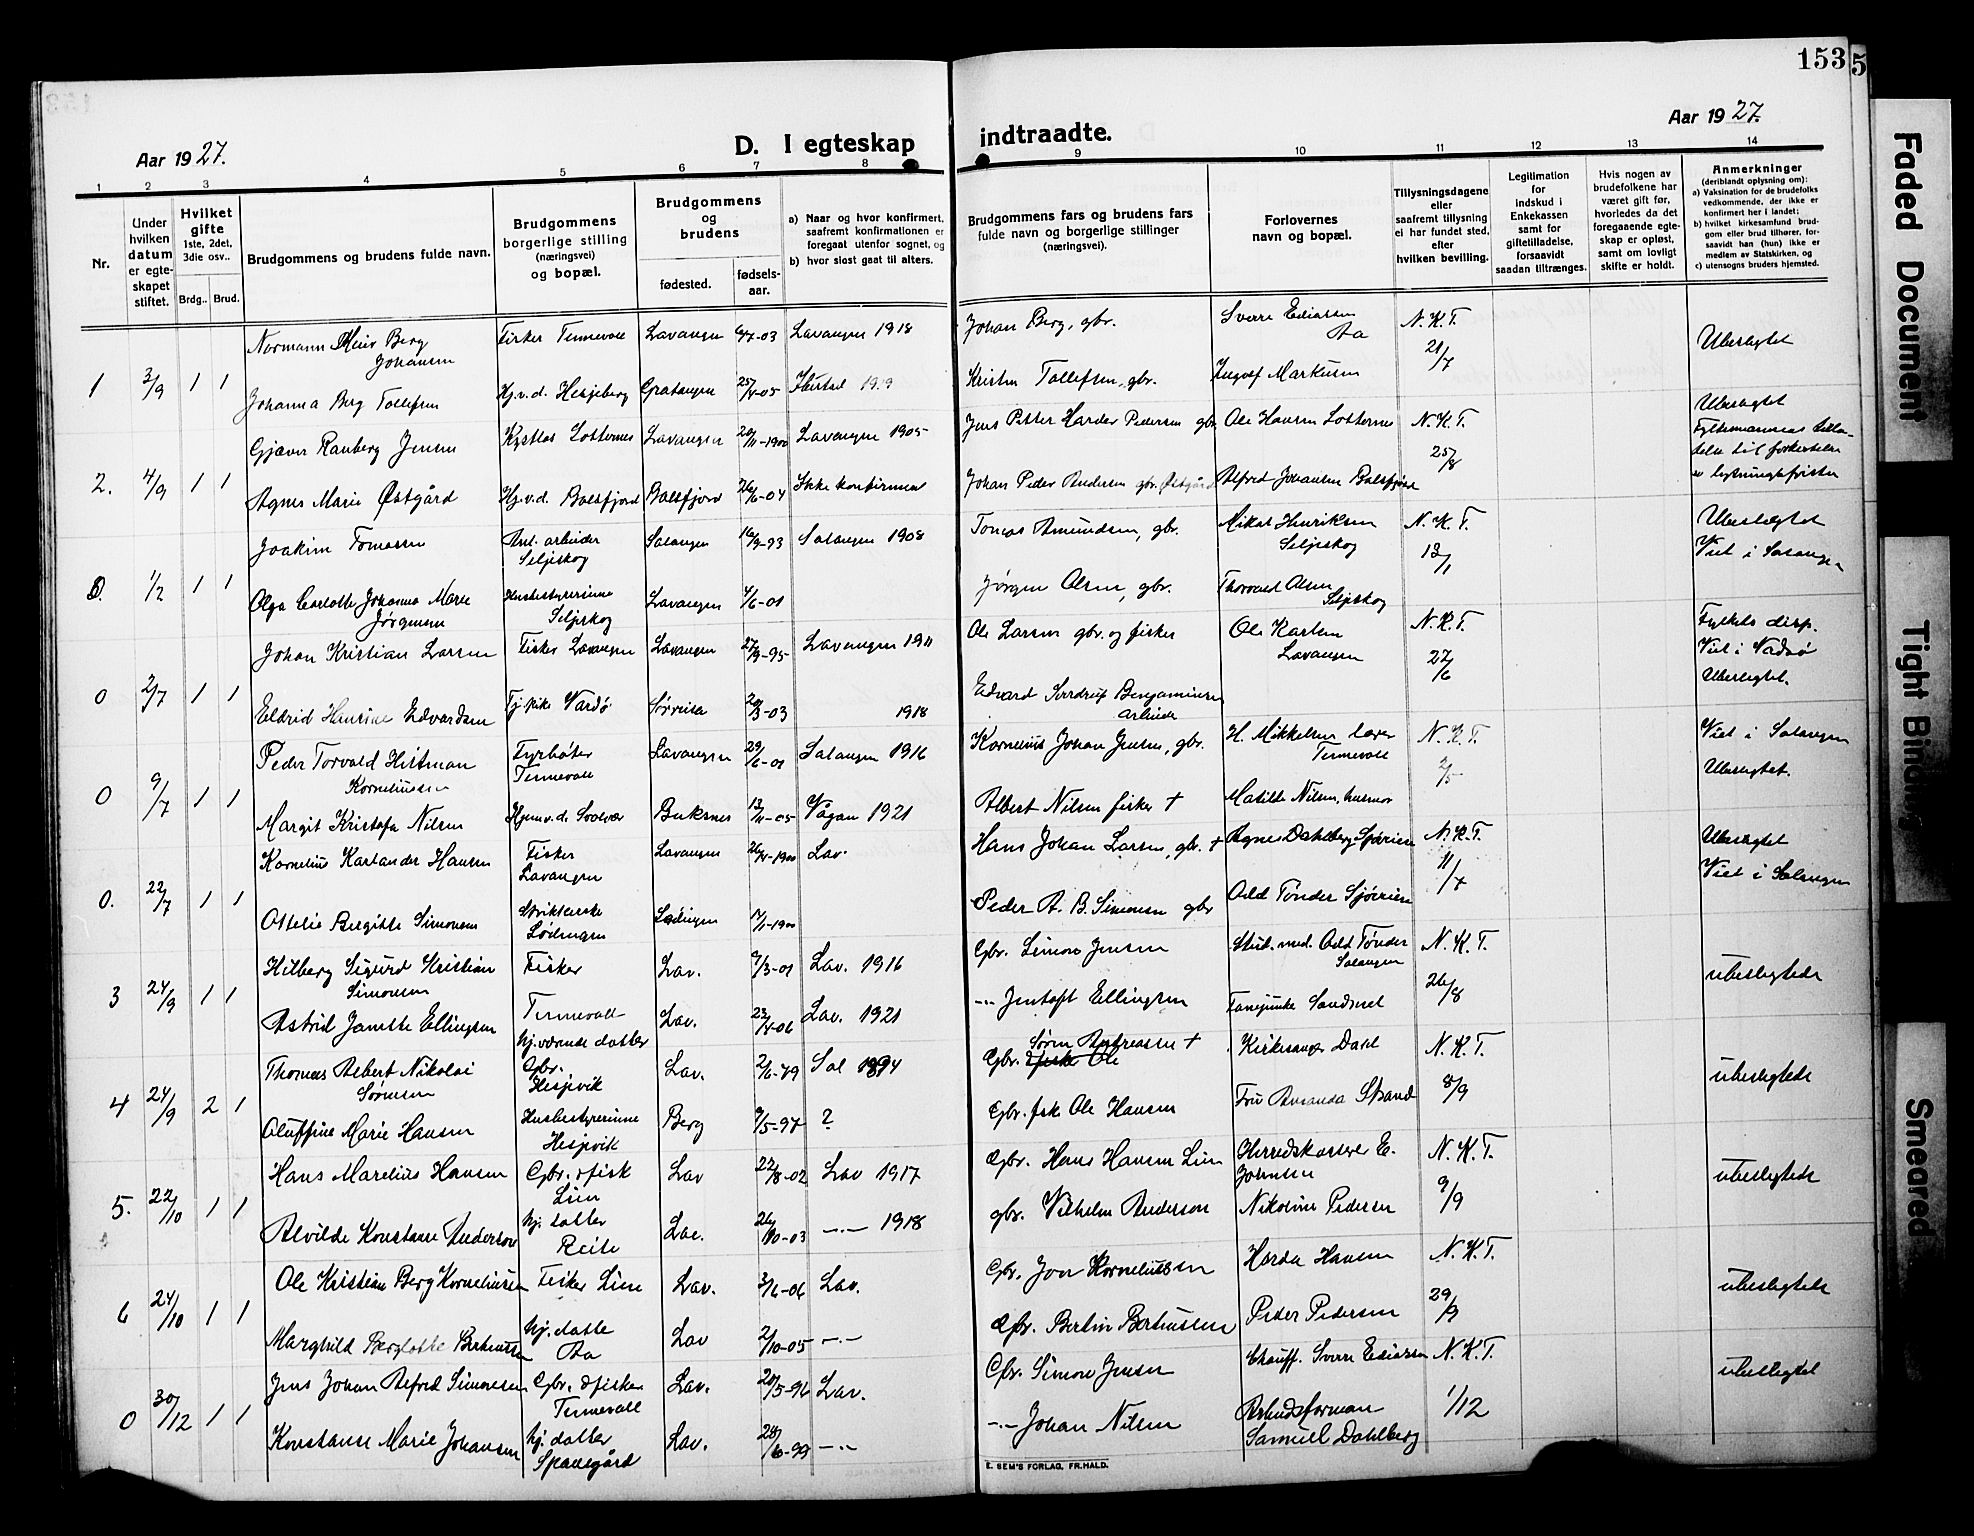 153
5
Aar 1927.
D. I egteskap
indtraadte.
Aar 1927.
1 2 3 4 5 6 7 8 9 10 11 12 13 14
Nr.
Under hvilken datum er egteskapet stiftet.
Hvilket gifte 1ste, 2det, 3die osv..
Brdg.. Brud.
Brudgommens og brudens fulde navn.
Brudgommens borgerlige stilling (næringsvei) og bopæl.
Brudgommens og brudens
fødested.
fødselsaar.
a) Naar og hvor konfirmert, saafremt konfirmationen er foregaat utenfor sognet, og
b) hvor sidst gaat til alters.
Brudgommens fars og brudens fars fulde navn og borgerlige stillinger (næringsvei).
Forlovernes navn og bopæl.
Tillysningsdagene eller saafremt tillysning ei har fundet sted, efter hvilken bevilling.
Legitimation for indskud i Enkekassen samt for giftetilladelse, forsaavidt saadan tiltrænges.
Hvis nogen av brudefolkene har været gift før, hvorledes da det foregaaende egteskap er opløst, samt om lovligt skifte er holdt.
Anmerkninger (deriblandt oplysning om):
a) Vaksination for de brudefolks vedkommende, der ikke er konfirmert her i landet;
b) hvilket kirkesamfund brudgom eller brud tilhører, forsaavidt han (hun) ikke er medlem av Statskirken, og
c) utensogns bruders hjemsted.
Normann Meier Berg Johansen Fisker Tennevoll Lavangen Lavangen 1918 Johan Berg, gbr. Sverre Ediassen Aa N.K.T. Ubeslegtet
1 3/9 1 1 21/7
Johanna Berg Tollefsen Hj.v.d. Hesjeberg Gratangen Kristen Tollefsen, gbr. Ingolf Markusen
Gjæver Rauberg Jensen Lavangen 20/11-1900 Lavangen 1905 Jens Petter Harder Pedersen gbr. Ole Hansen N.K.T. Ubeslegtet
2. 4/9 1 1 25/8
Agnes Marie Østgård Hj.v.d. Balsfjord Balsfjord 26/6-04 Ikke konfirmert Johan Peder Andersen gbr. Østgård Alfred Johansen Balsfjord
Joakim Tomassen Anl. arbeider Seljeskog Salangen 16/9-93 Salangen 1908 Tomas Amundsen, gbr. Mikal Henriksen Seljeskog N.K.T. Ubeslegtet Viet i Salangen
0. 1/2 1 1 13/1
Olga Carlotte Johanna Marie Jørgensen Husbestyrerinne Seljeskog Lavangen 4/6-01 Jørgen Olsen, gbr. Thorvald Olsen Seljeskog
Johan Kristian Larsen Fisker Lavangen Lavangen 27/9-95 Lavangen 1911 Ole Larsen gbr. og fisker Ole Karlsen Lavangen N.K.T. Fylkets disp. Viet i Vadsø
0 2/7 1 1 27/6 Ubeslegtet.
Eldrid Henrine Edvardsen Tj.pike Vardø Sørreisa 20/3-03 1918 Edvard Sverdrup Benjaminsen arbeider
Peder Torvald Hitman Korneliussen Fyrbøter Tennevoll Lavangen 29/6-01 Salangen 1916 Kornelius Johan Jensen, gbr. H. Mikkelsen lærer Tennevoll N.K.T. Viet i Salangen
0 9/7 1 1 2/5 Ubeslegtet.
Margit Kristofa Nilsen Hjemv.d. Svolvær Buksnes 13/11-05 Vågan 1921 Albert Nilsen fisker + Matilde Nilsen, husmor
Kornelius Karlander Hansen Fisker Lavangen Lavangen Lav. Hans Johan Larsen, gbr. + Agnes Dahlberg N.K.T. Ubeslegtet
0. 22/7 1 1 11/7 Viet i Salangen
Ottelie Bergitte Simonsen Lødingen Lødingen Peder A. B. Simonsen gbr Odd Tønder
Hilberg Sigurd Kristian Simonsen Fisker Lav. 9/3-01 Lav. 1916 Gbr. Simon Jensen Stud. med. Odd Tønder Salangen N.K.T.
3 24/9 1 1 26/8 ubeslegtede
Astrid Janette Ellingsen Tennevoll hj.værende datter Lav. Lav. 1921 -"- Jentoft Ellingsen
Thomas Albert Nikolai Sørensen Gbr. Hesjevik Lav. 2/6-79 Sal 1894 Gbr. Søren Andreassen + Kirkesanger Dahl N.K.T.
4 24/9 2 1 8/9 ubeslegtede
Oluffine Marie Hansen Husbestyrerinne Hesjevik Berg 9/5-97 ? Gbr. fisk Ole Hansen Fru Amanda Strand
Hans Marelius Hansen Gbr. & fisk Lien Lav 22/8-02 Lav 1917 Gbr. Hans Hansen Lien Herredskasserer E. Johnsen N.K.T.
5. 22/10 1 1 9/9 ubeslegtede
Alvilde Konstanse Anderson hj. datter Reite Lav. 26/10-03 -"- 1918 gbr. Vilhelm Anderson Nikoline Pedersen
Ole Kristian Berg Korneliussen Fisker Lien Lav. 3/6-06 Lav. Gbr. Jon Korneliussen Harda Hansen N.K.T.
6 24/10 1 1 29/9 ubeslegtede
Marghild Berglotte Berteussen hj. datter Aa Lav 2/10-05 -"- Gbr. Bertin Berteussen Peder Pedersen
Jens Johan Alfred Simonsen Gbr. & fisker Tennevoll Lav. 20/5-96 Lav. Gbr. Simon Jensen Chauff. Sverre Ediassen N.K.T.
0 30/12 1 1 1/12 ubeslegtet
Konstanse Marie Johansen hj. datter Spansgård Lav. 28/6-99 -"- -"- Johan Nilsen Arbeidsformann Samuel Dahlberg
E. SEM'S FORLAG, FR.HALD.
Faded Document
Tight Binding
Smeared